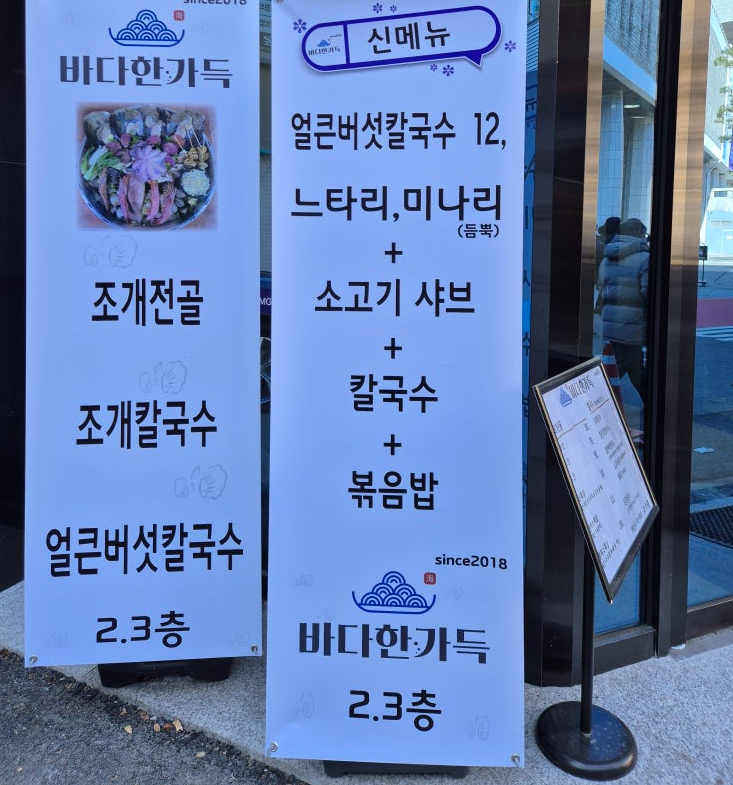 since2018
海
바다한가득
조개전골
조개칼국수
얼큰버섯칼국수
2.3층
바다한가득
신메뉴
얼큰버섯칼국수 12,
느타리,미나리
(듬뿍)
+
소고기 샤브
+
칼국수
+
볶음밥
since2018
海
바다한가득
2.3층
MG
바다한가득